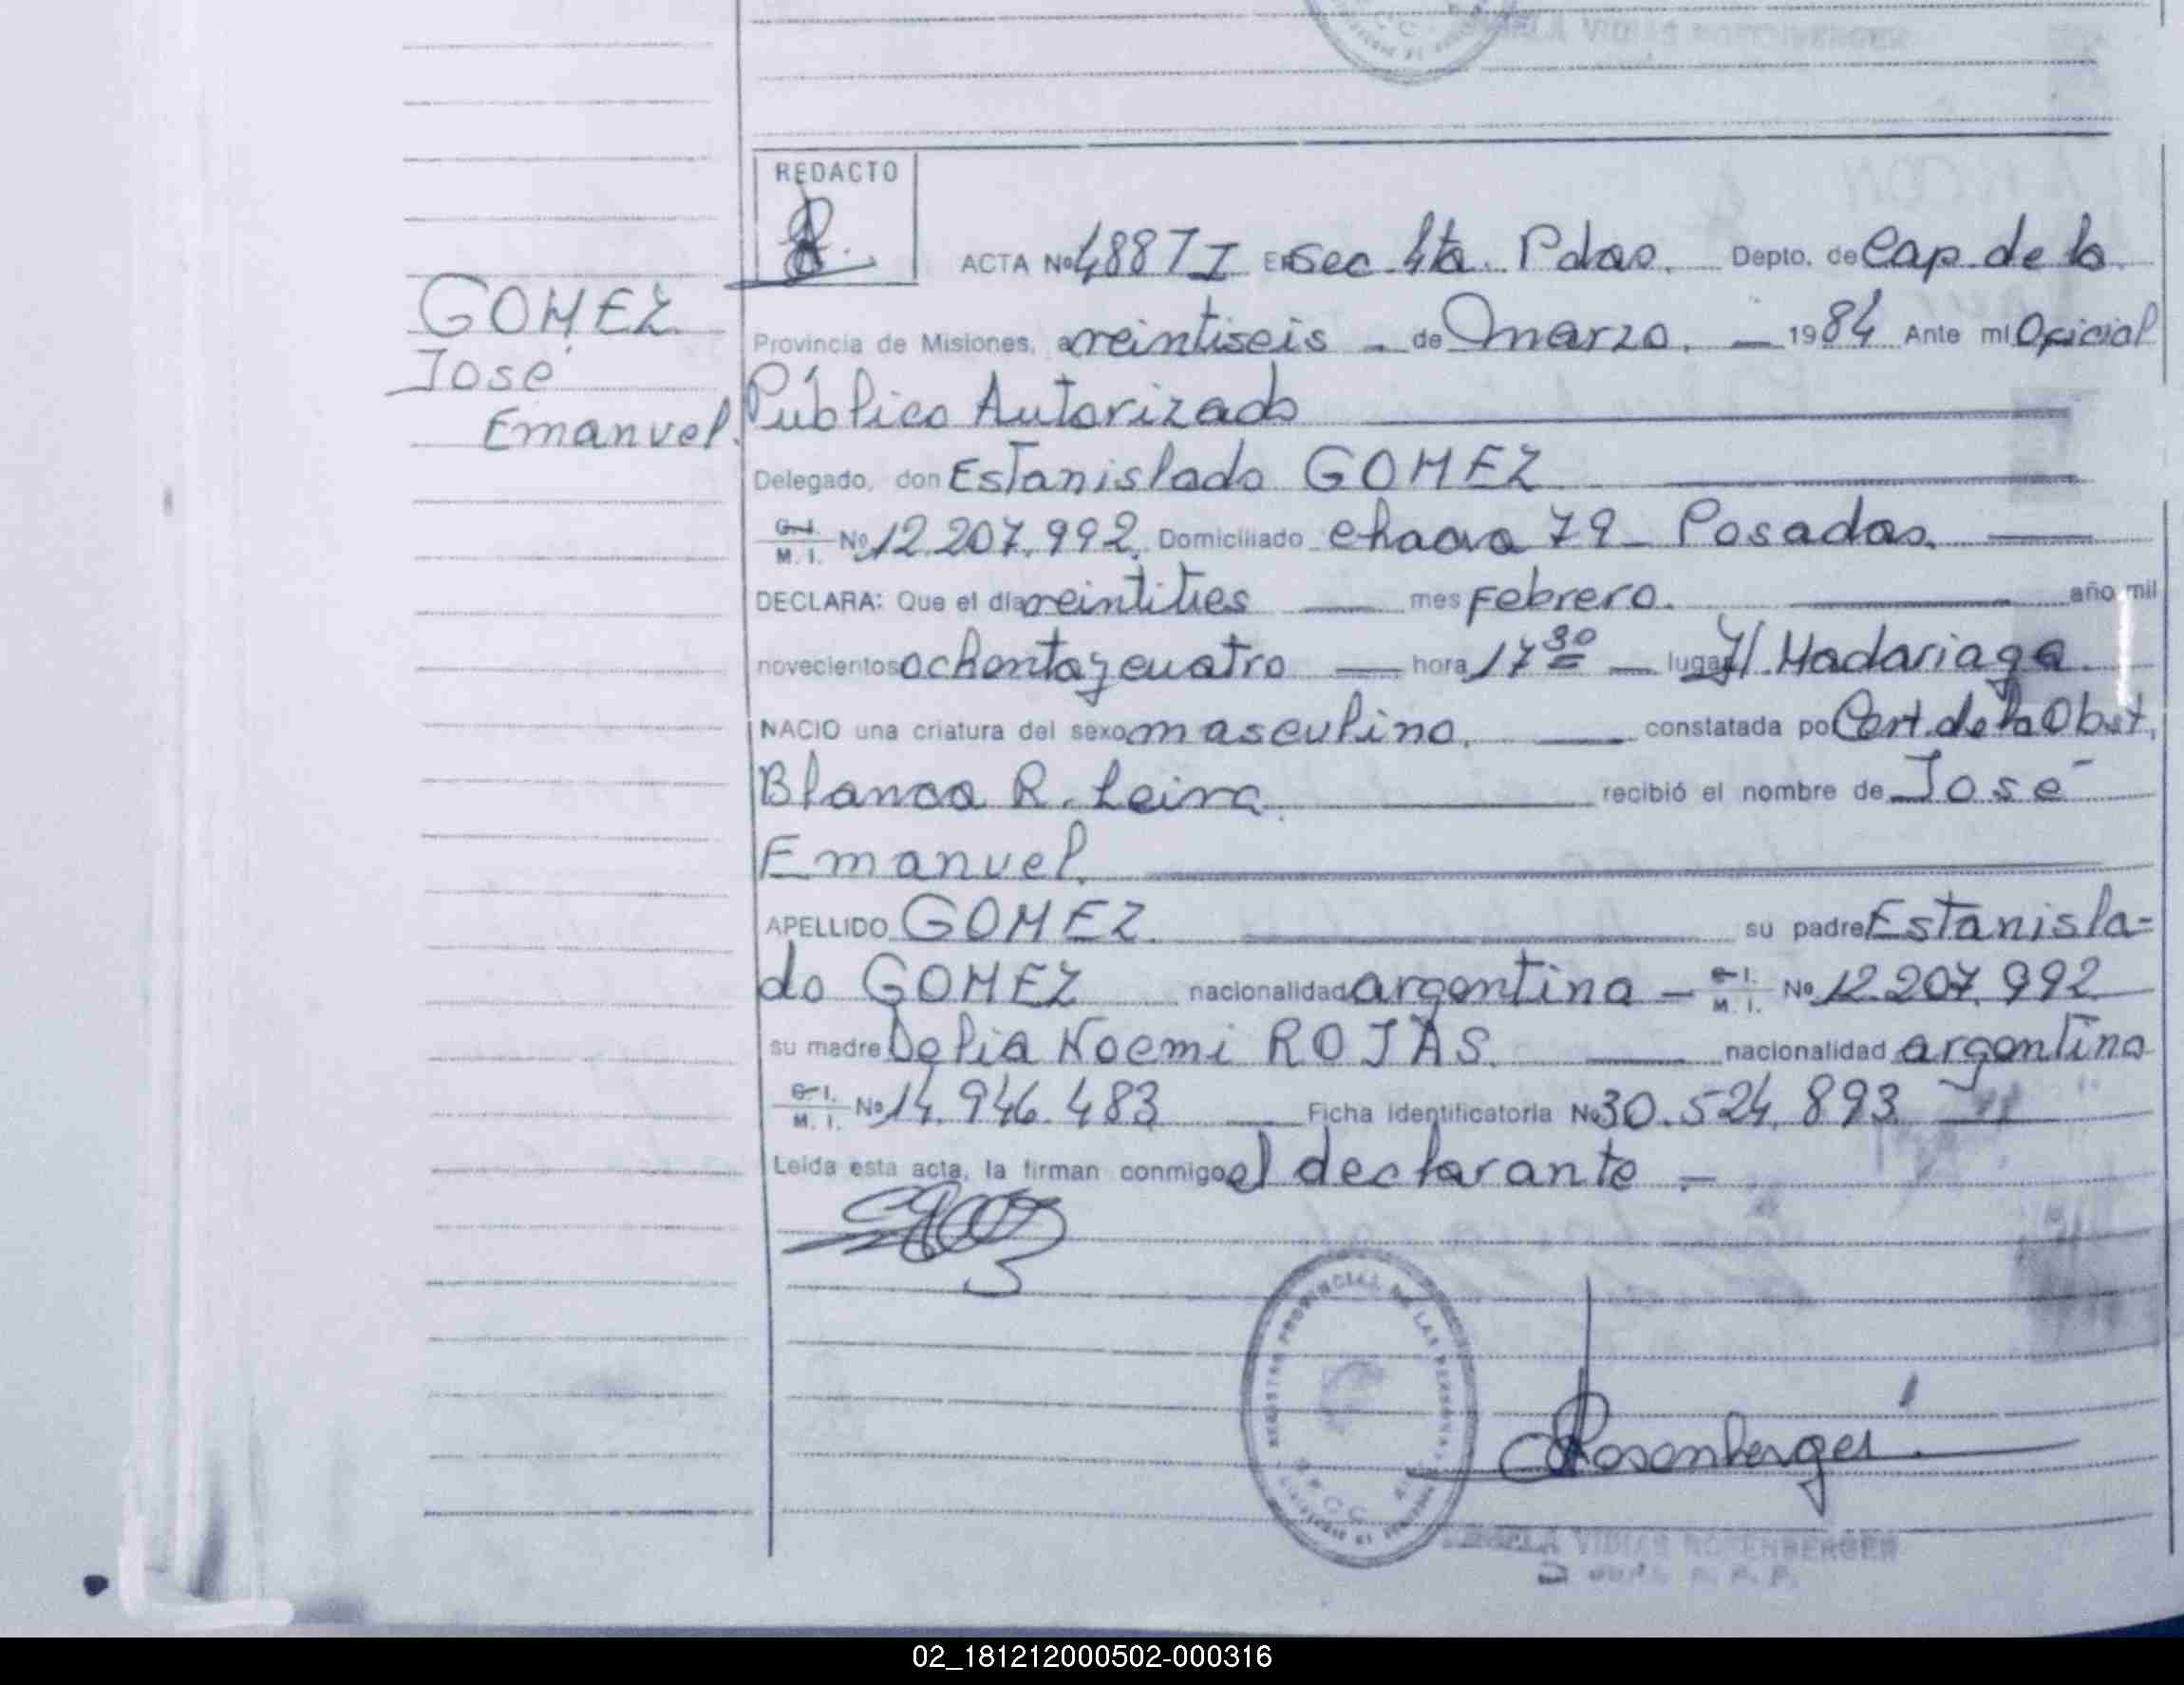 REDACTO
ACTA Nº 488 TI En Sec. 4ta. Pdas. Depto. de Cap. de la
GOMEZ
José
Emanuel.
Provincia de Misiones, a veintiseis - de marzo. — 1984 Ante mí Oficial
Público Autorizado
Delegado, don Estanislado GOMEZ
C. I. M. I. Nº 12.207.992. Domiciliado chacra 79 - Posadas.
DECLARA: Que el día veintitres — mes Febrero. — año mil
novecientos ochenta y cuatro — hora 17 30 — lugar H. Madariaga.
NACIO una criatura del sexo masculino. — constatada por Cert. de la Obst.
Blanca R. Leiva. recibió el nombre de José
Emanuel.
APELLIDO GOMEZ. su padre Estanisla=
do GOMEZ nacionalidad argentina — C. I. M. I. Nº 12.207.992
su madre Delia Noemi ROJAS. — nacionalidad argentina
C. I. M. I. Nº 14.946.483 Ficha identificatoria Nº 30.524.893
Leída esta acta, la firman conmigo el declarante.-
REGISTRO PROVINCIAL DE LAS PERSONAS
Rosenberger
VIDIAS ROTENBERGER
02_181212000502-000316